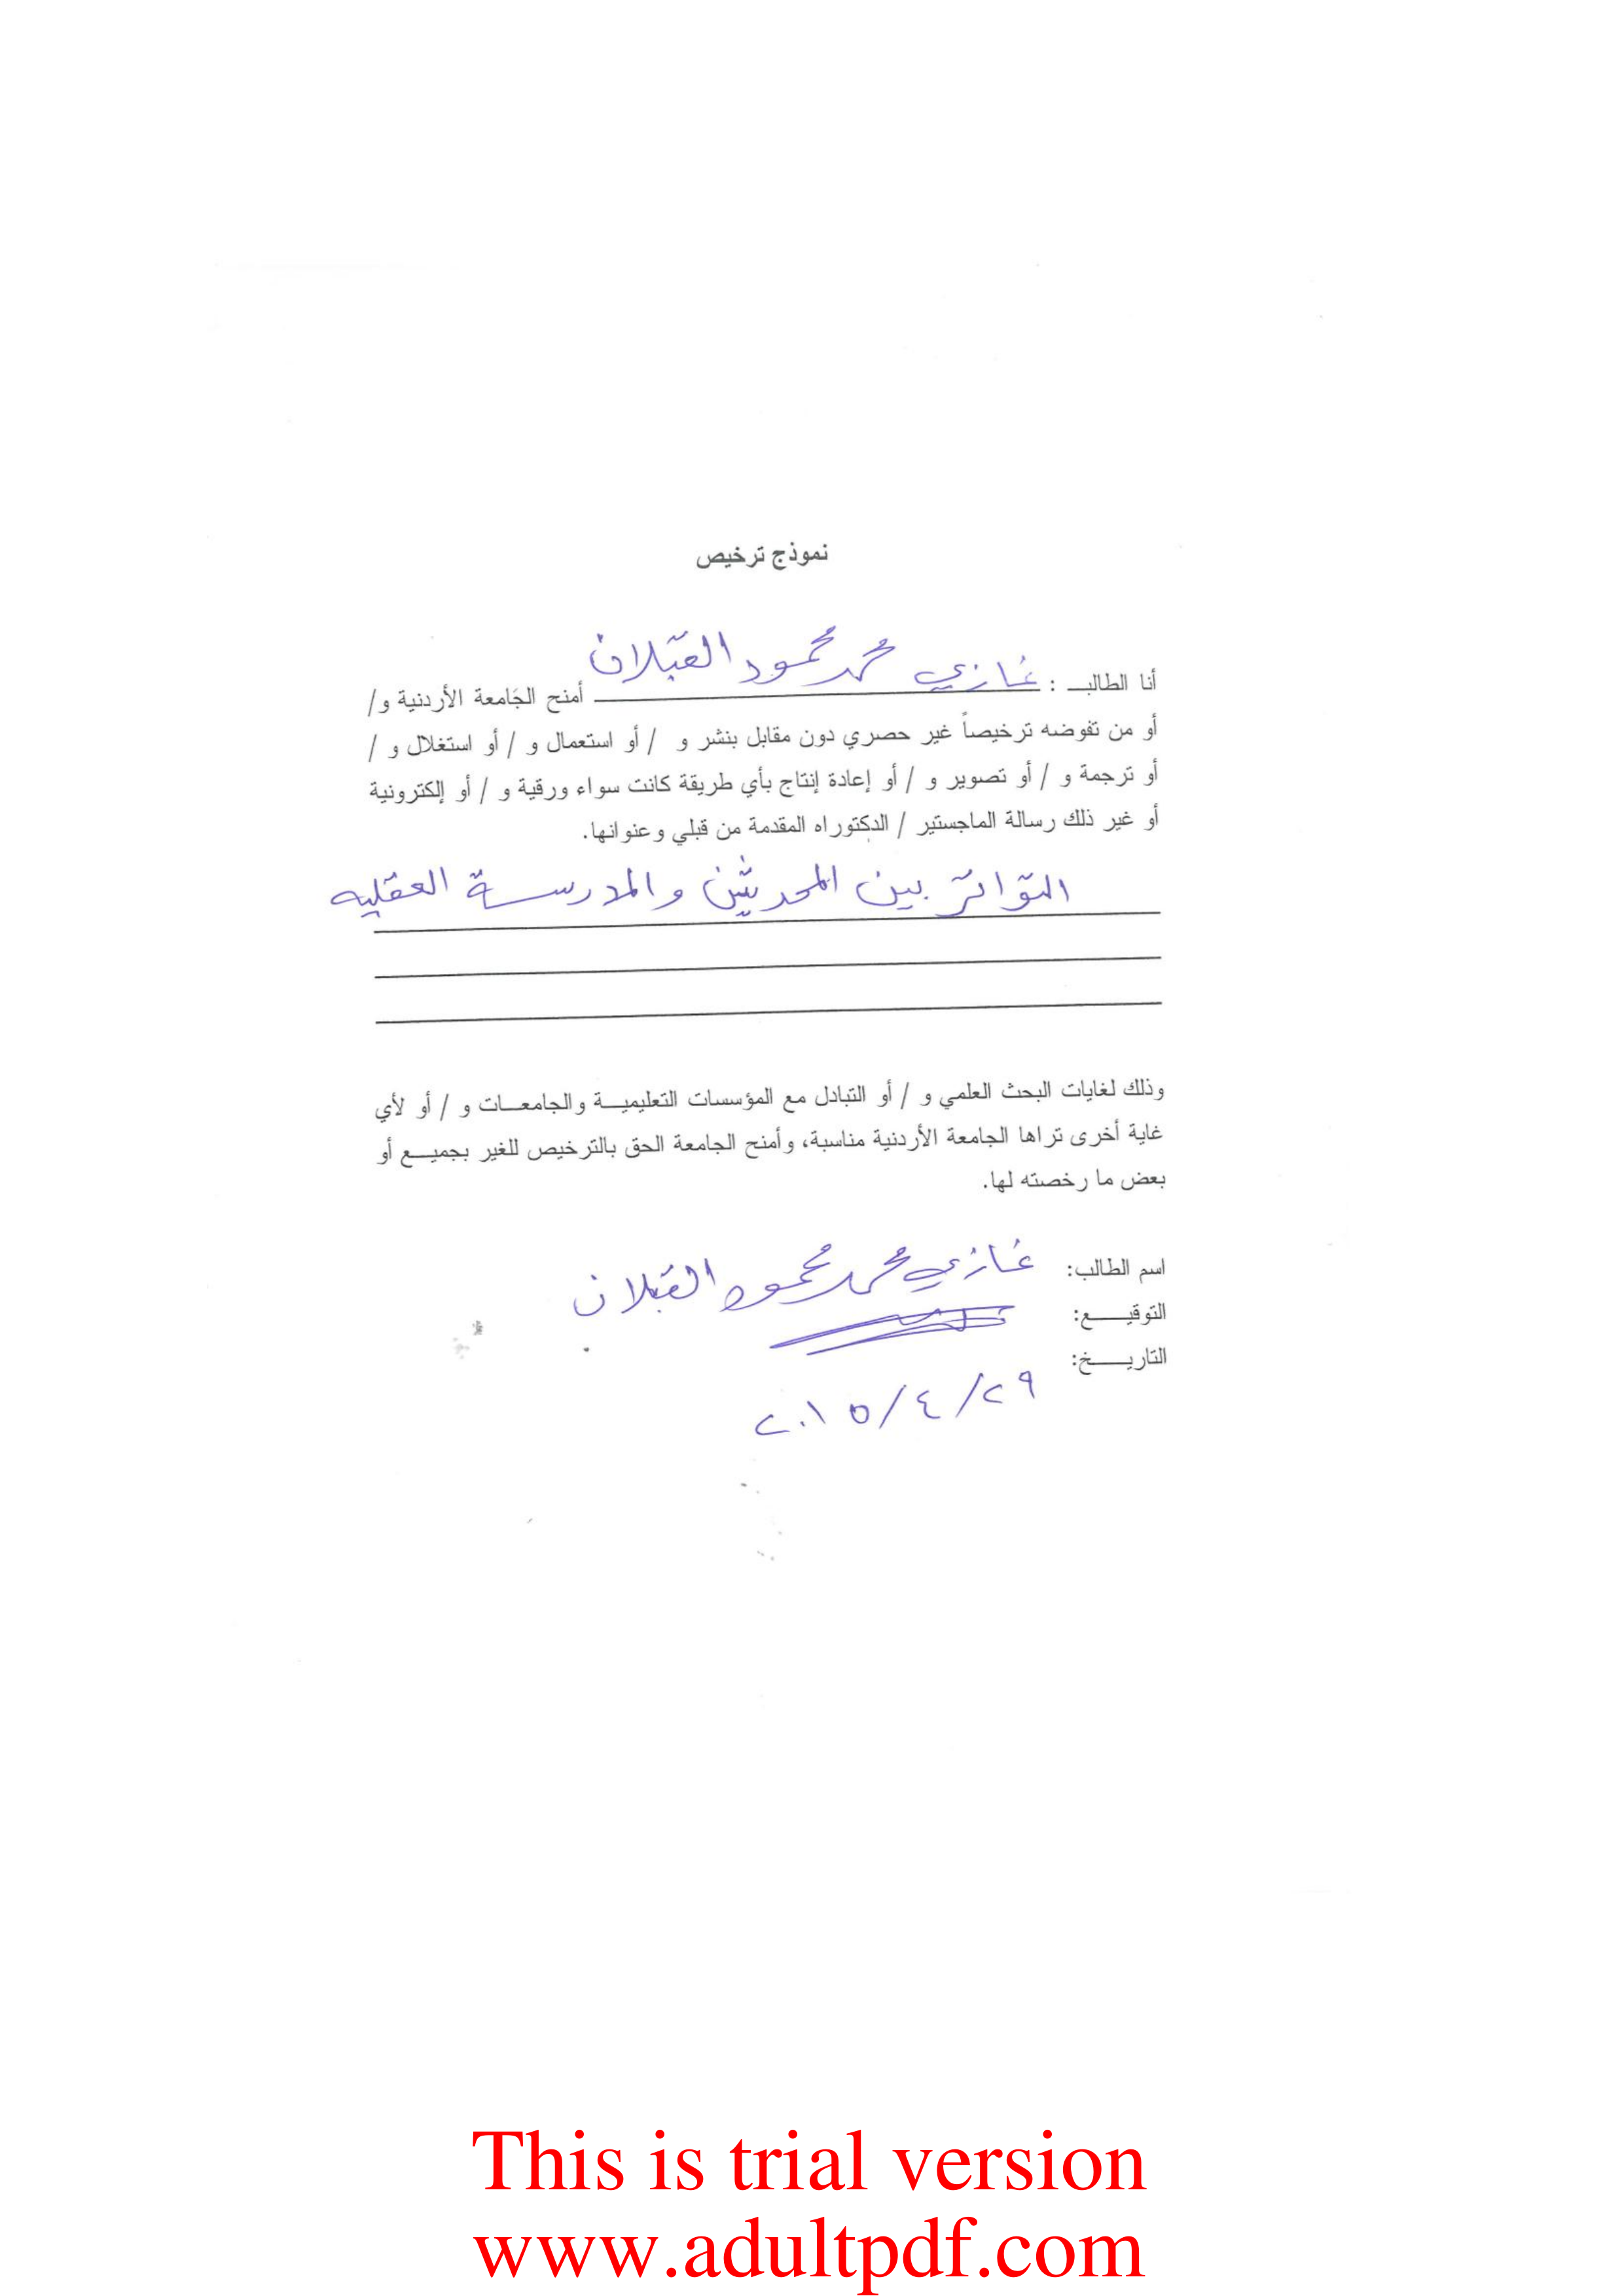 نموذج ترخيص
أنا الطالبـ : غازي محمد محمود القبلان أمنح الجامعة الأردنية و/
أو من تفوضه ترخيصاً غير حصري دون مقابل بنشر و / أو استعمال و / أو استغلال و /
أو ترجمة و / أو تصوير و / أو إعادة إنتاج بأي طريقة كانت سواء ورقية و / أو إلكترونية
أو غير ذلك رسالة الماجستير / الدكتوراه المقدمة من قبلي وعنوانها.
التواتر بين المحدثين والمدرسة العقليه
وذلك لغايات البحث العلمي و / أو التبادل مع المؤسسات التعليميـــة والجامعـــات و / أو لأي
غاية أخرى تراها الجامعة الأردنية مناسبة، وأمنح الجامعة الحق بالترخيص للغير بجميـــع أو
بعض ما رخصته لها.
اسم الطالب: غازي محمد محمود القبلان
التوقيـــع:
التاريـــخ:
٢٩/٤/٢٠١٥
This is trial version
www.adultpdf.com